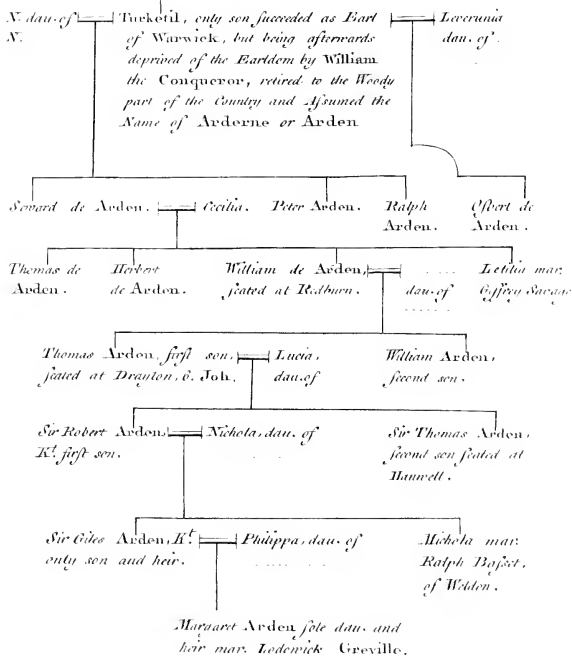 N. dau. of
N.
Turketil, only son ſucceeded as Earl
of Warwick, but being afterwards
deprived of the Earldom by William
the Conqueror, retired to the Woody
part of the Country and Aſsumed the
Name of Arderne or Arden
Leverunia
dau. of.
Seward de Arden.
Cecilia.
Peter Arden.
Ralph
Arden.
Oſbert de
Arden.
Thomas de
Arden.
Herbert
de Arden.
William de Arden,
ſeated at Rodburn.
. . . .
dau. of
. . . . . .
Letitia mar.
Geffrey Savage
Thomas Arden, firſt son,
ſeated at Drayton, 6. Joh.
Lucia,
dau. of
William Arden,
second son.
Sir Robert Arden,
Kt. firſt son.
Nichola, dau. of
. . . .
Sir Thomas Arden,
second son ſeated at
Hanwell.
Sir Giles Arden, Kt.
only son and heir.
Philippa, dau. of
. . . . . . . .
Nichola mar.
Ralph Baſset,
of Weldon.
Margaret Arden ſole dau. and
heir mar. Lodowick Greville.